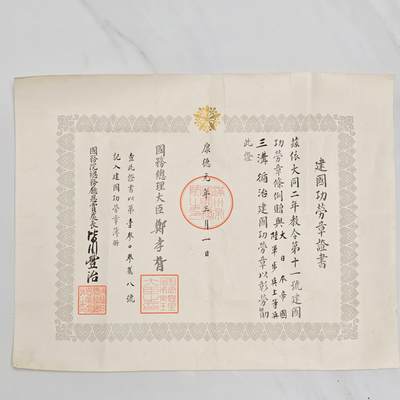 建國功勞章證書
茲依大同二年敎令第十一號建國
功勞章條例贈與大日本帝國
陸軍步兵上等兵
三溝
治建國功勞章以彰勞勛
此證
康德元年三月一日
國務總理大臣 鄭孝胥
查此證書以第壹參
八號
記入建國功勞章簿冊
國務院總務廳恩賞處長